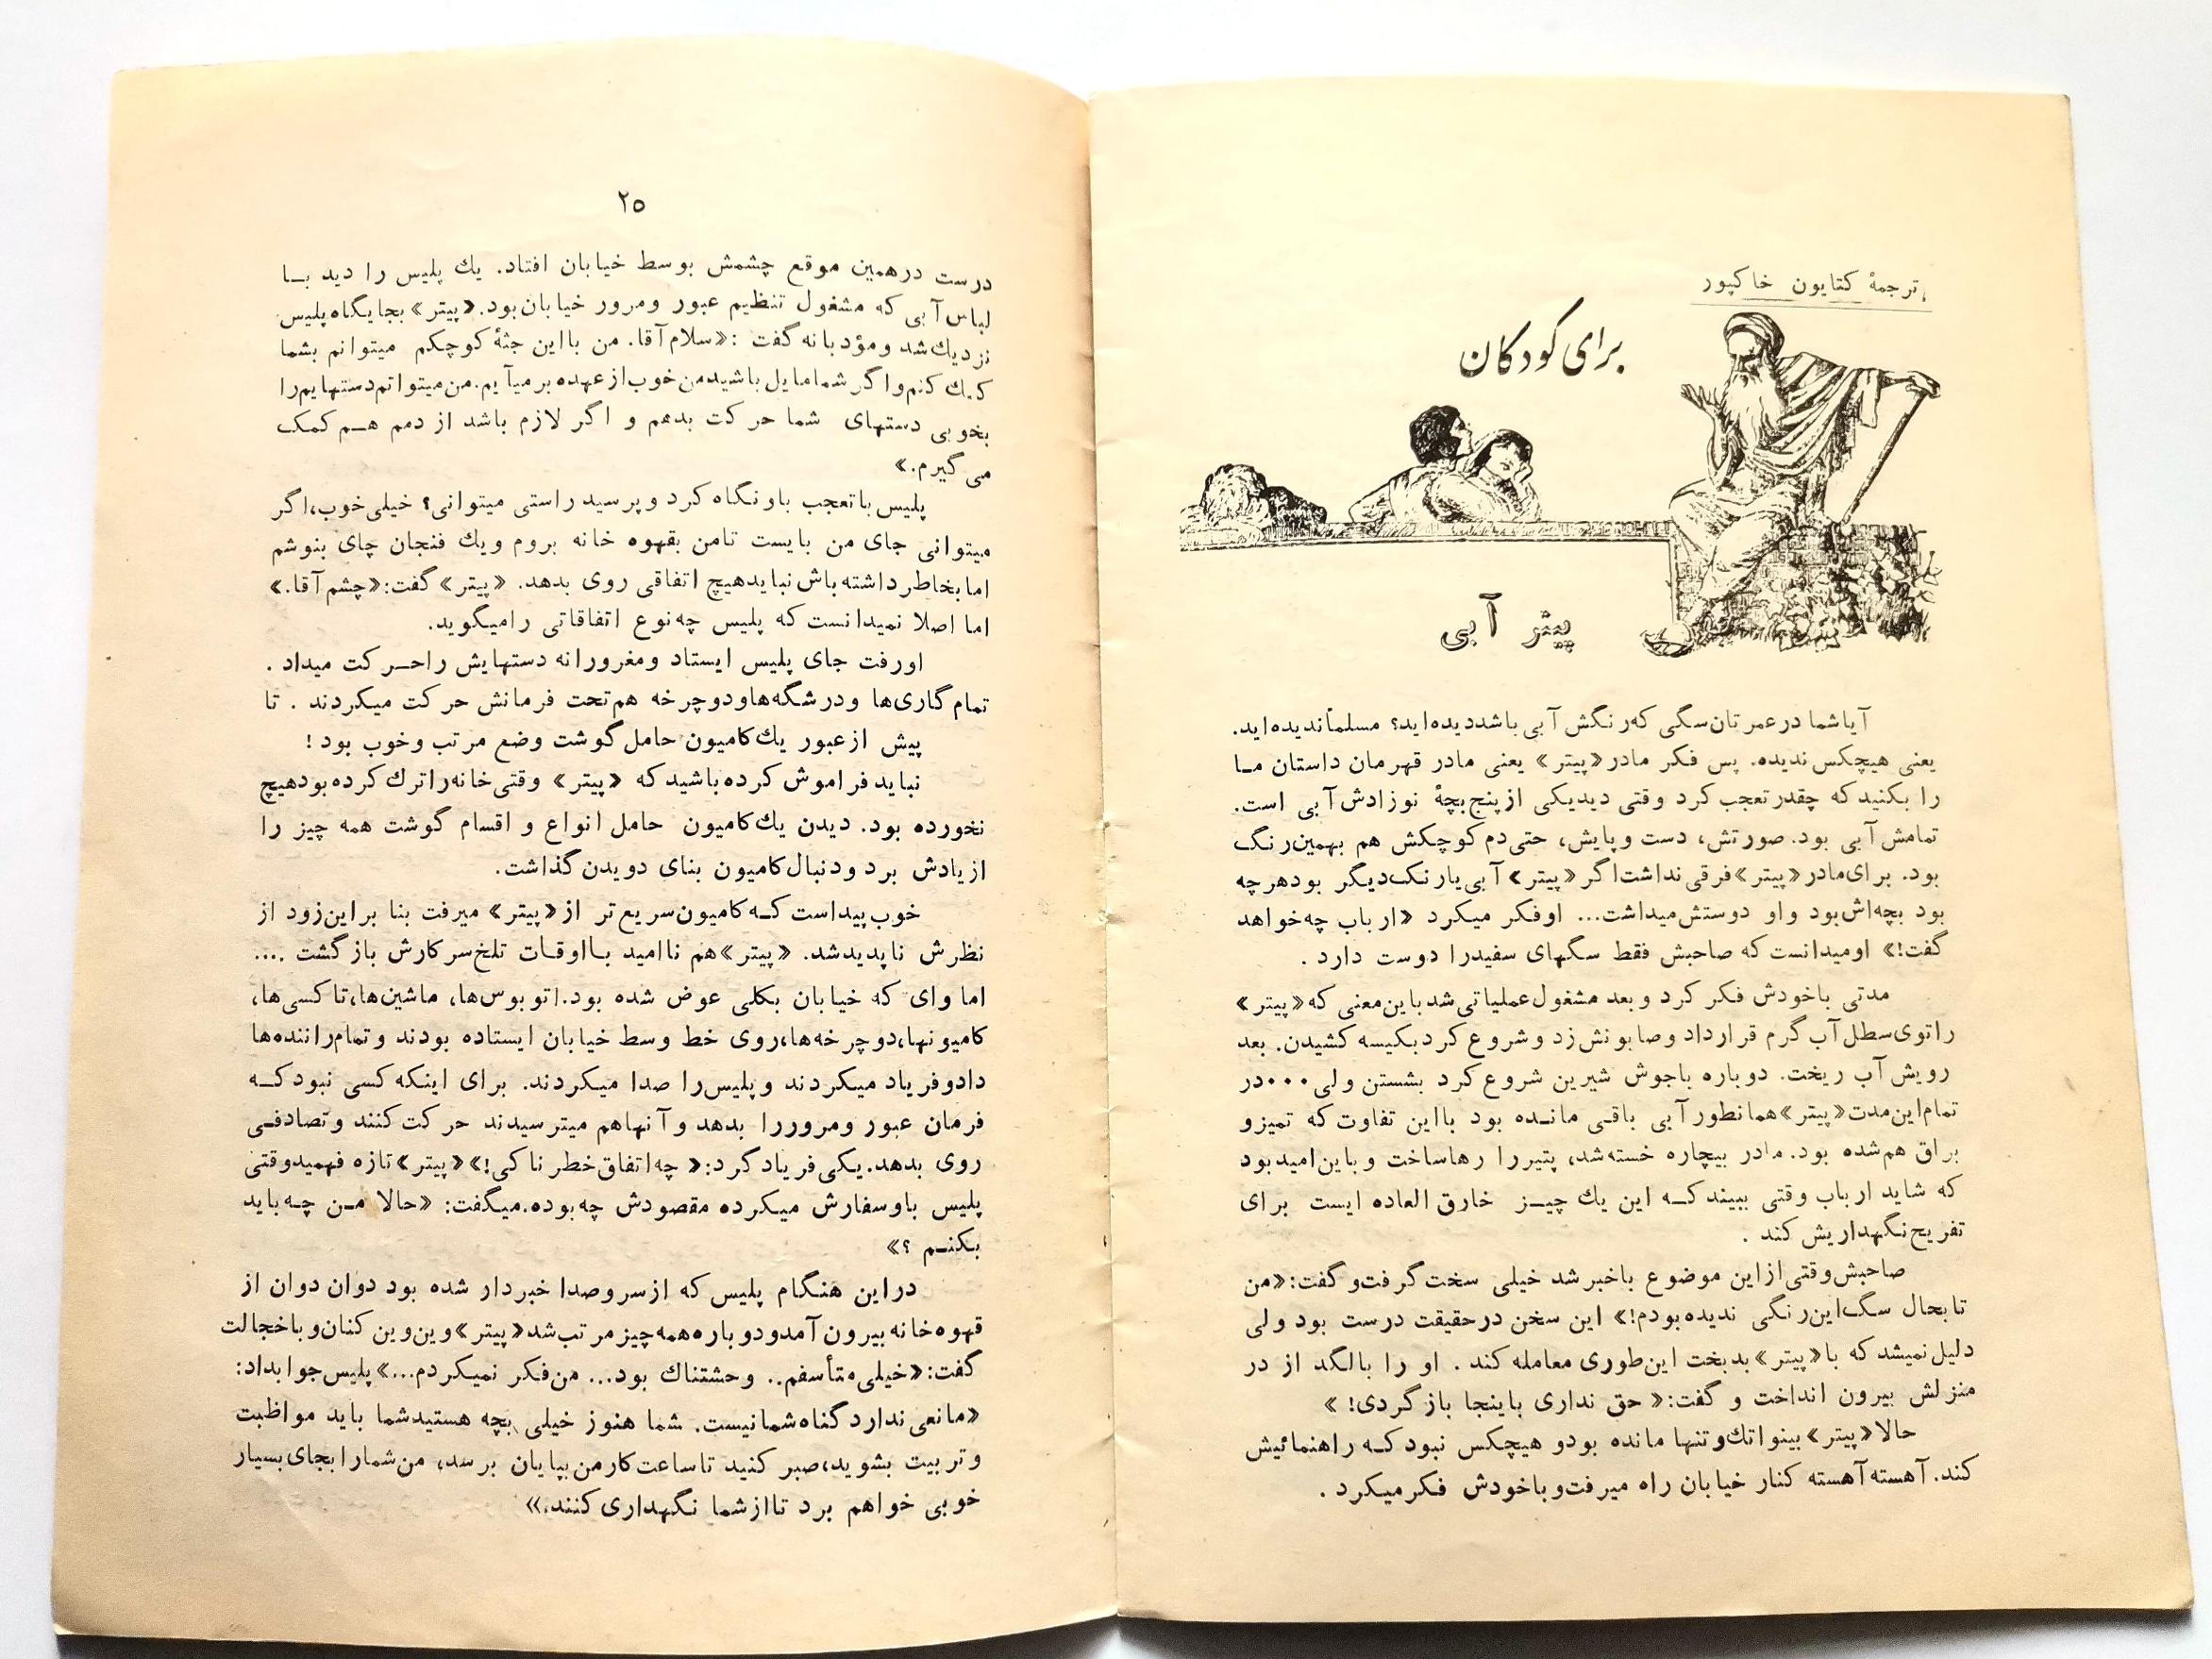 ترجمهٔ کتایون خاکپور
برای کودکان
پیتر آبی
آیاشما در عمرتان‌سگی که‌رنگش آبی باشددیده‌اید؟ مسلمأندیده‌اید.
یعنی هیچکس‌ندیده. پس فکر مادر«پیتر» یعنی مادر قهرمان داستان مـا
را بکنیدکه چقدرتعجب‌کرد وقتی دیدیکی ازپنج‌بچهٔ نوزادش‌آبی است.
تمامش‌آبی بود. صورتش، دست وپایش، حتی‌دم‌کوچکش هم بهمین‌رنگ
بود. برای‌مادر«پیتر»فرقی‌نداشت‌اگر«پیتر» آبی‌یارنگ‌دیگر بودهرچه
بود بچه‌اش‌بود واو دوستش‌میداشت... اوفکر میکرد «ارباب چه‌خواهد
گفت!» اومیدانست‌که صاحبش فقط سگهای سفیدرا دوست دارد .
مدتی باخودش فکر کرد وبعد مشغول‌عملیاتی‌شدباین‌معنی که«پیتر»
راتوی‌سطل‌آب‌گرم قرارداد وصابونش‌زد وشروع‌کردبکیسه‌کشیدن. بعد
رویش‌آب ریخت. دوباره باجوش شیرین شروع‌کرد بشستن ولی...در
تمام‌این‌مدت«پیتر»همانطورآبی باقـی مانـده بود بااین تفاوت‌که تمیزو
براق هم‌شده بود. مادر بیچاره خسته‌شد، پتیررا رهاساخت وباین‌امیدبود
که شاید ارباب وقتی ببیندکـه این یك چیـز خارق‌العاده ایست برای
تفریح‌نگهداریش‌کند .
صاحبش‌وقتی‌ازاین موضوع باخبرشد خیلی سخت‌گرفت‌وگفت:«من
تابحال سگ‌این‌رنگی ندیده‌بودم!» این سخن درحقیقت درست بود ولی
دلیل‌نمیشدکه با«پیتر»بدبخت این‌طوری معامله‌کند . او را بالگد از در
منزلش بیرون انداخت و گفت:« حق نداری باینجا بازگردی! »
حالا«پیتر»بینواتك‌وتنها مانده بودو هیچکس نبودکـه راهنمائیش
کند. آهسته‌آهسته کنار خیابان راه میرفت‌وباخودش فکرمیکرد .
۲۵
درست درهمین موقع چشمش بوسط خیابان افتاد. یك پلیس را دید بـا
لباس‌آبی که مشغول تنظیم عبور ومرور خیابان‌بود. «پیتر» بجایگاه‌پلیس
نزدیك‌شد ومؤدبانه گفت :«سلام‌آقا. من بااین جثهٔ‌کوچکم میتوانم بشما
کمك‌کنم‌واگرشمامایل‌باشیدمن‌خوب‌ازعهده‌برمیآیم.من‌میتوانم‌دستهایم‌را
بخوبی دستهای شما حرکت بدهم و اگر لازم باشد از دمم هـم کمک
می‌گیرم.»
پلیس‌باتعجب باونگاه‌کرد وپرسیدراستی میتوانی؟ خیلی‌خوب،اگر
میتوانی جای من بایست تامن بقهوه خانه بروم ویك فنجان چای بنوشم
امابخاطرداشته‌باش‌نبایدهیچ اتفاقی روی بدهد. «پیتر» گفت:«چشم‌آقا.»
اما اصلا نمیدانست‌که پلیس چه‌نوع اتفاقاتی رامیگوید.
اورفت جای پلیس ایستاد ومغرورانه دستهایش راحـرکت میداد .
تمام‌گاری‌ها ودرشگه‌هاودوچرخه هم‌تحت فرمانش حرکت میکردند . تا
پیش ازعبور یك‌کامیون حامل‌گوشت وضع مرتب وخوب بود !
نباید فراموش کرده‌باشیدکه «پیتر» وقتی‌خانه‌راترك‌کرده‌بودهیچ
نخورده بود. دیدن یك‌کامیون حامل انواع و اقسام گوشت همه چیز را
ازیادش برد ودنبال‌کامیون بنای دویدن‌گذاشت.
خوب‌پیداست کـه‌کامیون‌سریع‌تر از«پیتر» میرفت بنا براین‌زود از
نظرش ناپدیدشد. «پیتر»هم ناامید بـااوقـات تلخ‌سرکارش بازگشت ....
اما وای که خیابان بکلی عوض شده بود.اتوبوس‌ها، ماشین‌ها،تاکسی‌ها،
کامیونها،دوچرخه‌ها،روی خط وسط خیابان ایستاده بودند وتمام‌راننده‌ها
دادوفریاد میکردند وپلیس‌را صدا میکردند. برای اینکه کسی نبودکـه
فرمان عبور ومروررا بدهد وآنهاهم میترسیدند حرکت‌کنند وتصادفـی
روی بدهد.یکی‌فریادکرد:« چه‌اتفاق‌خطرناکی!»«پیتر»تازه فهمیدوقتی
پلیس باوسفارش میکرده مقصودش چه‌بوده.میگفت: «حالا مـن چـه‌باید
بکنـم ؟»
دراین هنگام پلیس‌که ازسروصدا خبردار شده بود دوان دوان از
قهوه‌خانه‌بیرون‌آمدودوباره‌همه‌چیزمرتب‌شد«پیتر»وین‌وین‌کنان‌وباخجالت
گفت:«خیلی‌متأسفم.. وحشتناك بود... من‌فکر نمیکردم...»پلیس‌جوابداد:
«مانعی‌نداردگناه‌شمانیست. شما هنوز خیلی بچه هستیدشما باید مواظبت
وتربیت بشوید،صبر کنید تاساعت‌کارمن‌بپایان برسد، من‌شمارابجای‌بسیار
خوبی خواهم برد تاازشما نگهداری‌کنند.»